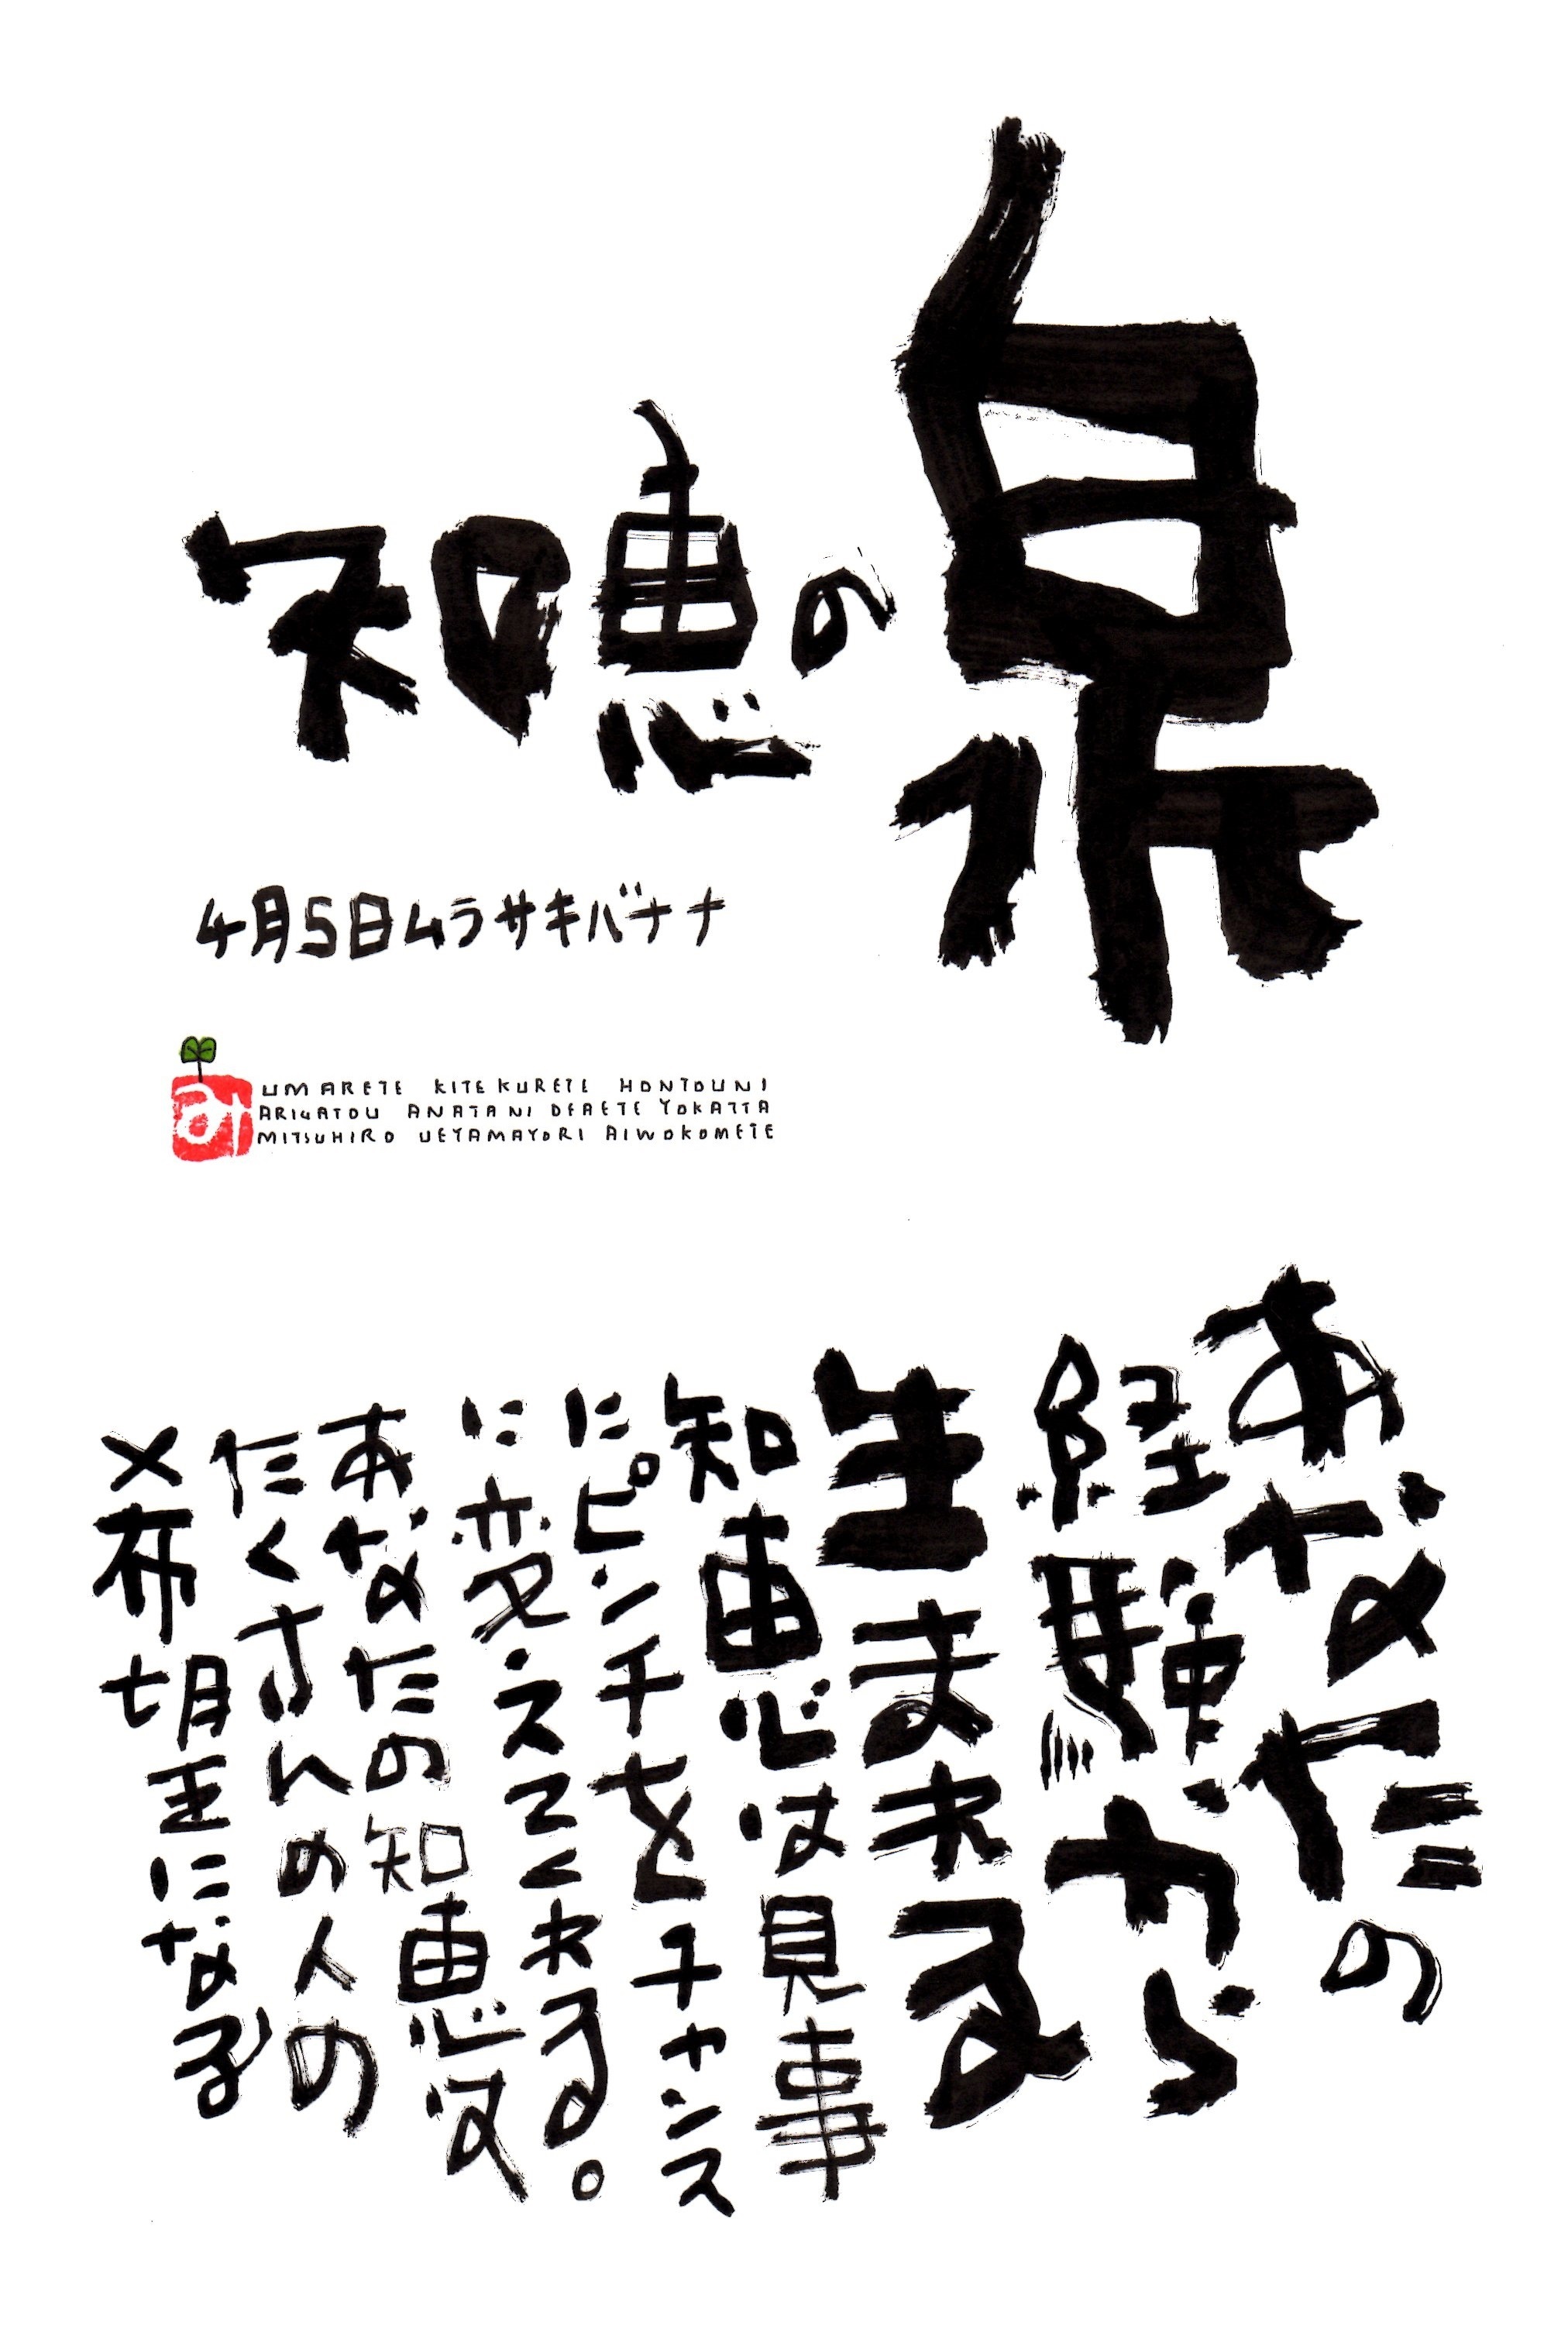 知恵の泉
4月5日ムラサキバナナ
み
UMARETE KITEKURETE HONTOUNI
ARIGATOU ANATANI DEAETE YOKATTA
MITSUHIRO UEYAMAYORI AIWOKOMETE
あなたの
経験から
生まれる
知恵は見事
にピンチをチャンス
に変えてくれる。
あなたの知恵は
たくさんの人の
希望になる